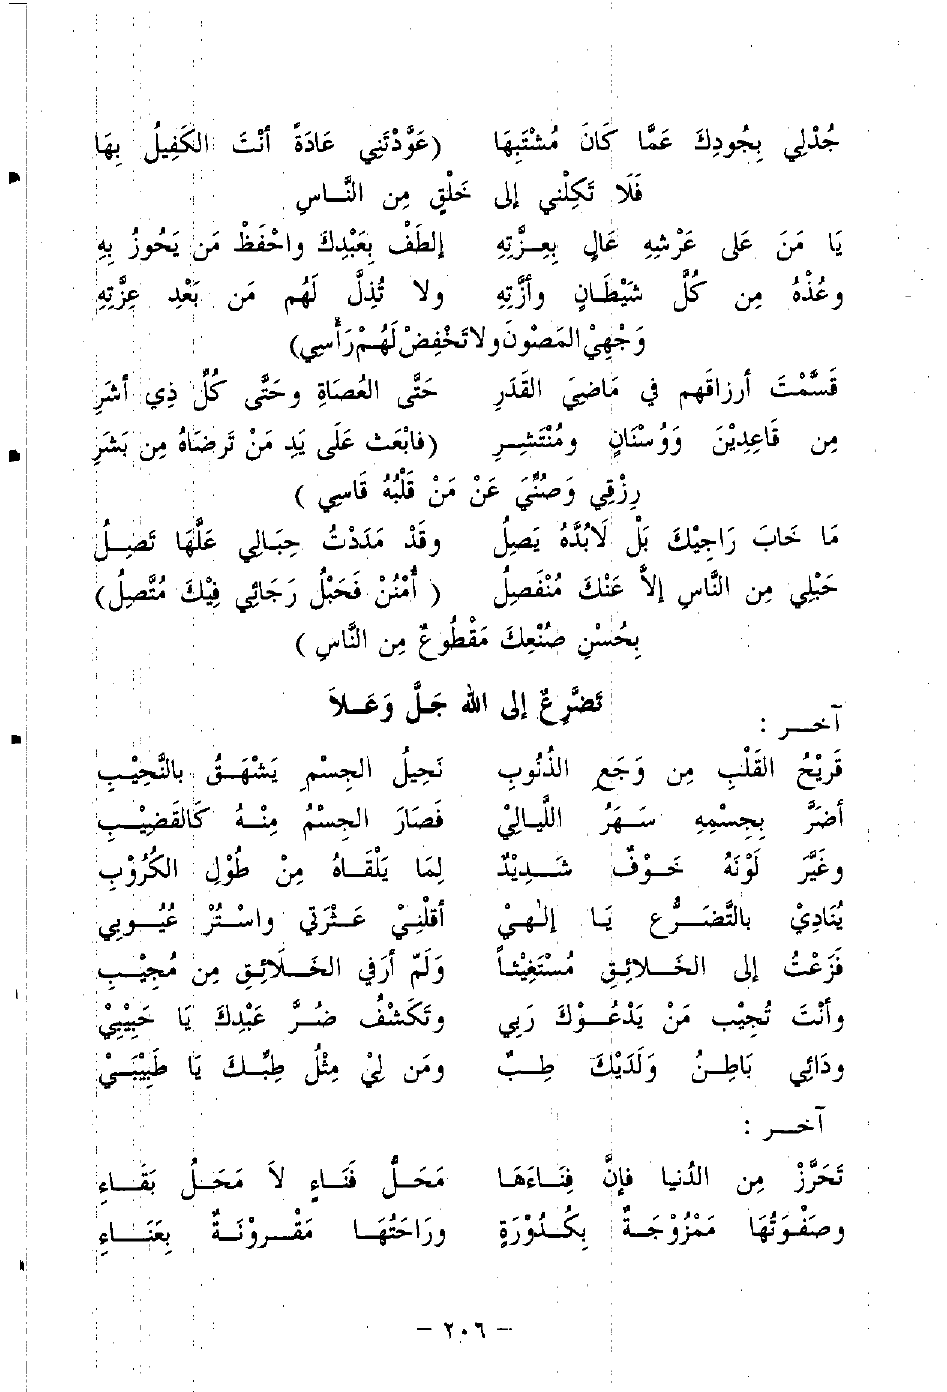 جُدْلِي بِجُودِكَ عَمَّا كَانَ مُشْتَبِهَا (عَوَّدْتَنِي عَادَةً أنْتَ الكَفِيلُ بِهَا
فَلَا تَكِلْنِي إلى خَلْقٍ مِن النَّـاسِ
يَا مَنَ عَلى عَرْشِهِ عَالٍ بِعِـزَّتِهِ إلطَفْ بِعَبْدِكَ واحْفَظْ مَن يَحُوزُ بِهِ
وعُذْهُ مِن كُلَّ شَيْطَـانٍ وأزَّتِهِ ولا تُذِلَّ لَهُم مَن بَعْدِ عِزَّتِهِ
وَجْهِيْ المَصْوُنَ ولا تَخْفِضْ لَهُمْ رَأسِي)
قَسَّمْتَ أرزاقَهم في مَاضِيَ القَدَرِ حَتَّى العُصَاةِ وحَتَّى كُلَّ ذِي أشَرِ
مِن قَاعِدِيْنَ وَوُسْنَانٍ ومُنْتَشِـرِ (فابْعَث عَلَى يَدِ مَنْ تَرضَاهُ مِن بَشَرِ
رِزْقِي وَصُنِّيَ عَنْ مَنْ قَلْبُهُ قَاسِي )
مَا خَابَ رَاجِيْكَ بَلْ لَابُدَّهُ يَصِلُ وقَدْ مَدَدْتُ حِبَالِي عَلَّهَا تَصِـلُ
حَبْلِي مِن النَّاسِ إلاَّ عَنْكَ مُنْفَصِلُ ( أُمْنُنْ فَحَبْلُ رَجَائِي فِيْكَ مُتَّصِلُ)
بِحُسْنِ صُنْعِكَ مَقْطُوعٌ مِن النَّاسِ )
تَضَرُّعٌ إلى الله جَلَّ وَعَـلاَ
آخـر :
قَرِيْحُ القَلْبِ مِن وَجَعِ الذُنُوبِ نَحِيلُ الجِسْمِ يَشْهَـقُ بالنَّحِيْبِ
أضَرَّ بِجِسْمِهِ سَـهَرُ اللَّيالِيْ فَصَارَ الجِسْمُ مِنْـهُ كَالقَضِيْـبِ
وغَيَّرَ لَوْنَهُ خَـوْفٌ شَـدِيْدٌ لِمَا يَلْقَـاهُ مِنْ طُوْلِ الكُرُوْبِ
يُنَادِيْ بالتَّضَـرُّعِ يَـا إلـٰهِيْ أقلْنِـيْ عَـثْرَتي واسْـتُرْ عُيُـوبي
فَزَعْتُ إلى الخَـلائِقِ مُسْتَغِيْثـاً وَلَمْ أرَفي الخَـلائِقِ مِن مُجِيْـبِ
وأنْتَ تُجِيْب مَنْ يَدْعُـوْكَ رَبي وتَكَشْفُ ضُرَّ عَبْدِكَ يَا حَبِيْبِيْ
ودَائِي بَاطِـنُ وَلَدَيْكَ طِـبٌ ومَن لِيْ مِثْلُ طِبِّـكَ يَا طَبِيْبَـيْ
آخـر :
تَحَرَّزْ مِن الدُنيا فإنَّ فِنَـاءَهَـا مَحَـلُّ فَنَـاءٍ لاَ مَحَـلُ بَقَـاءِ
وصَفْوَتُهَا مَمْزُوْجَـةٌ بِكُـدُوْرَةٍ ورَاحَتُهَـا مَقْـرونَـةٌ بِعَنَـاءِ
– ٢٠٦ –